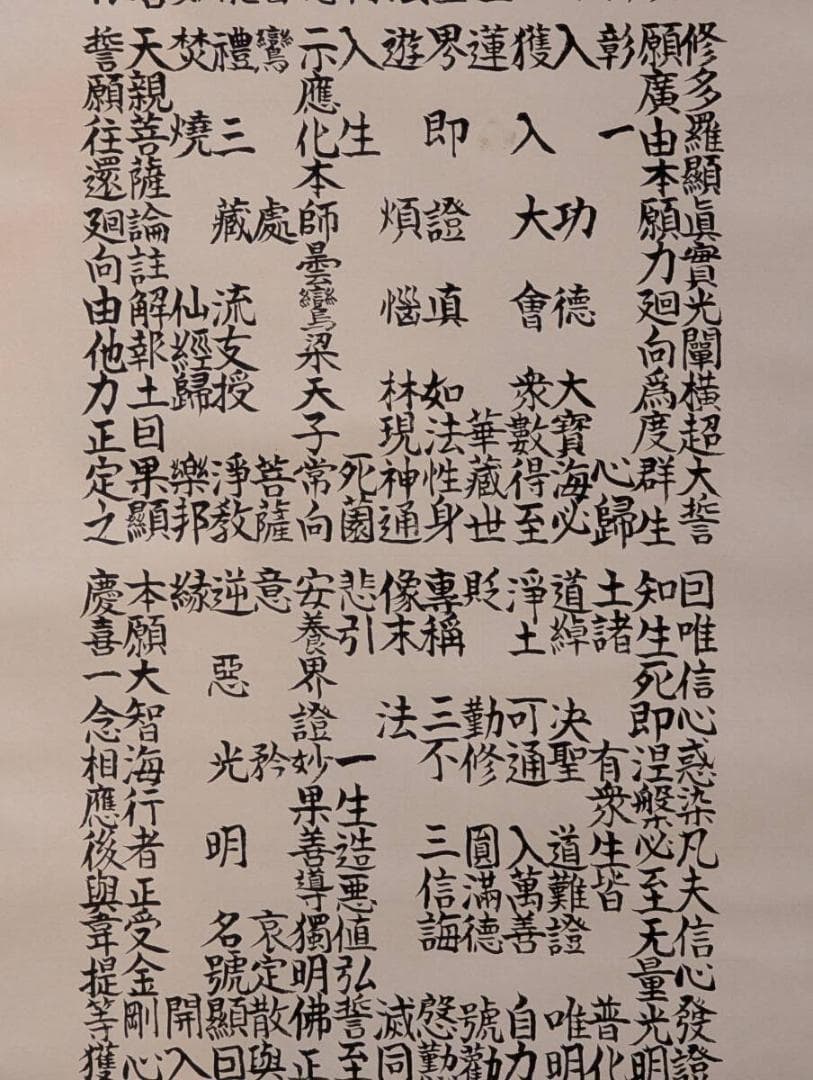 修多羅顯眞實光闡橫超大誓
願廣由本願力廻向爲度群生
彰一心歸
入功德大寶海必
獲入大會衆數得至
蓮華藏世
界即證真如法性身
遊煩惱林現神通
入生死薗
示應化本師曇鸞梁天子常向
鸞處菩薩
禮三藏流支授淨教
焚燒仙經歸樂邦
天親菩薩論註解報土因果顯
誓願往還廻向由他力正定之
因唯信心惑染凡夫信心發證
知生死即涅槃必至无量光明
土諸有衆生皆普化
道綽决聖道難證唯明
淨土可通入萬善自力
貶勤修圓滿德號勸
專稱三不三信誨慇勤
像末法滅同
悲引一生造惡値弘誓至
安養界證妙果善導獨明佛正
意矜哀定散與
逆惡光明名號顯因
縁開入
本願大智海行者正受金剛心
慶喜一念相應後與韋提等獲